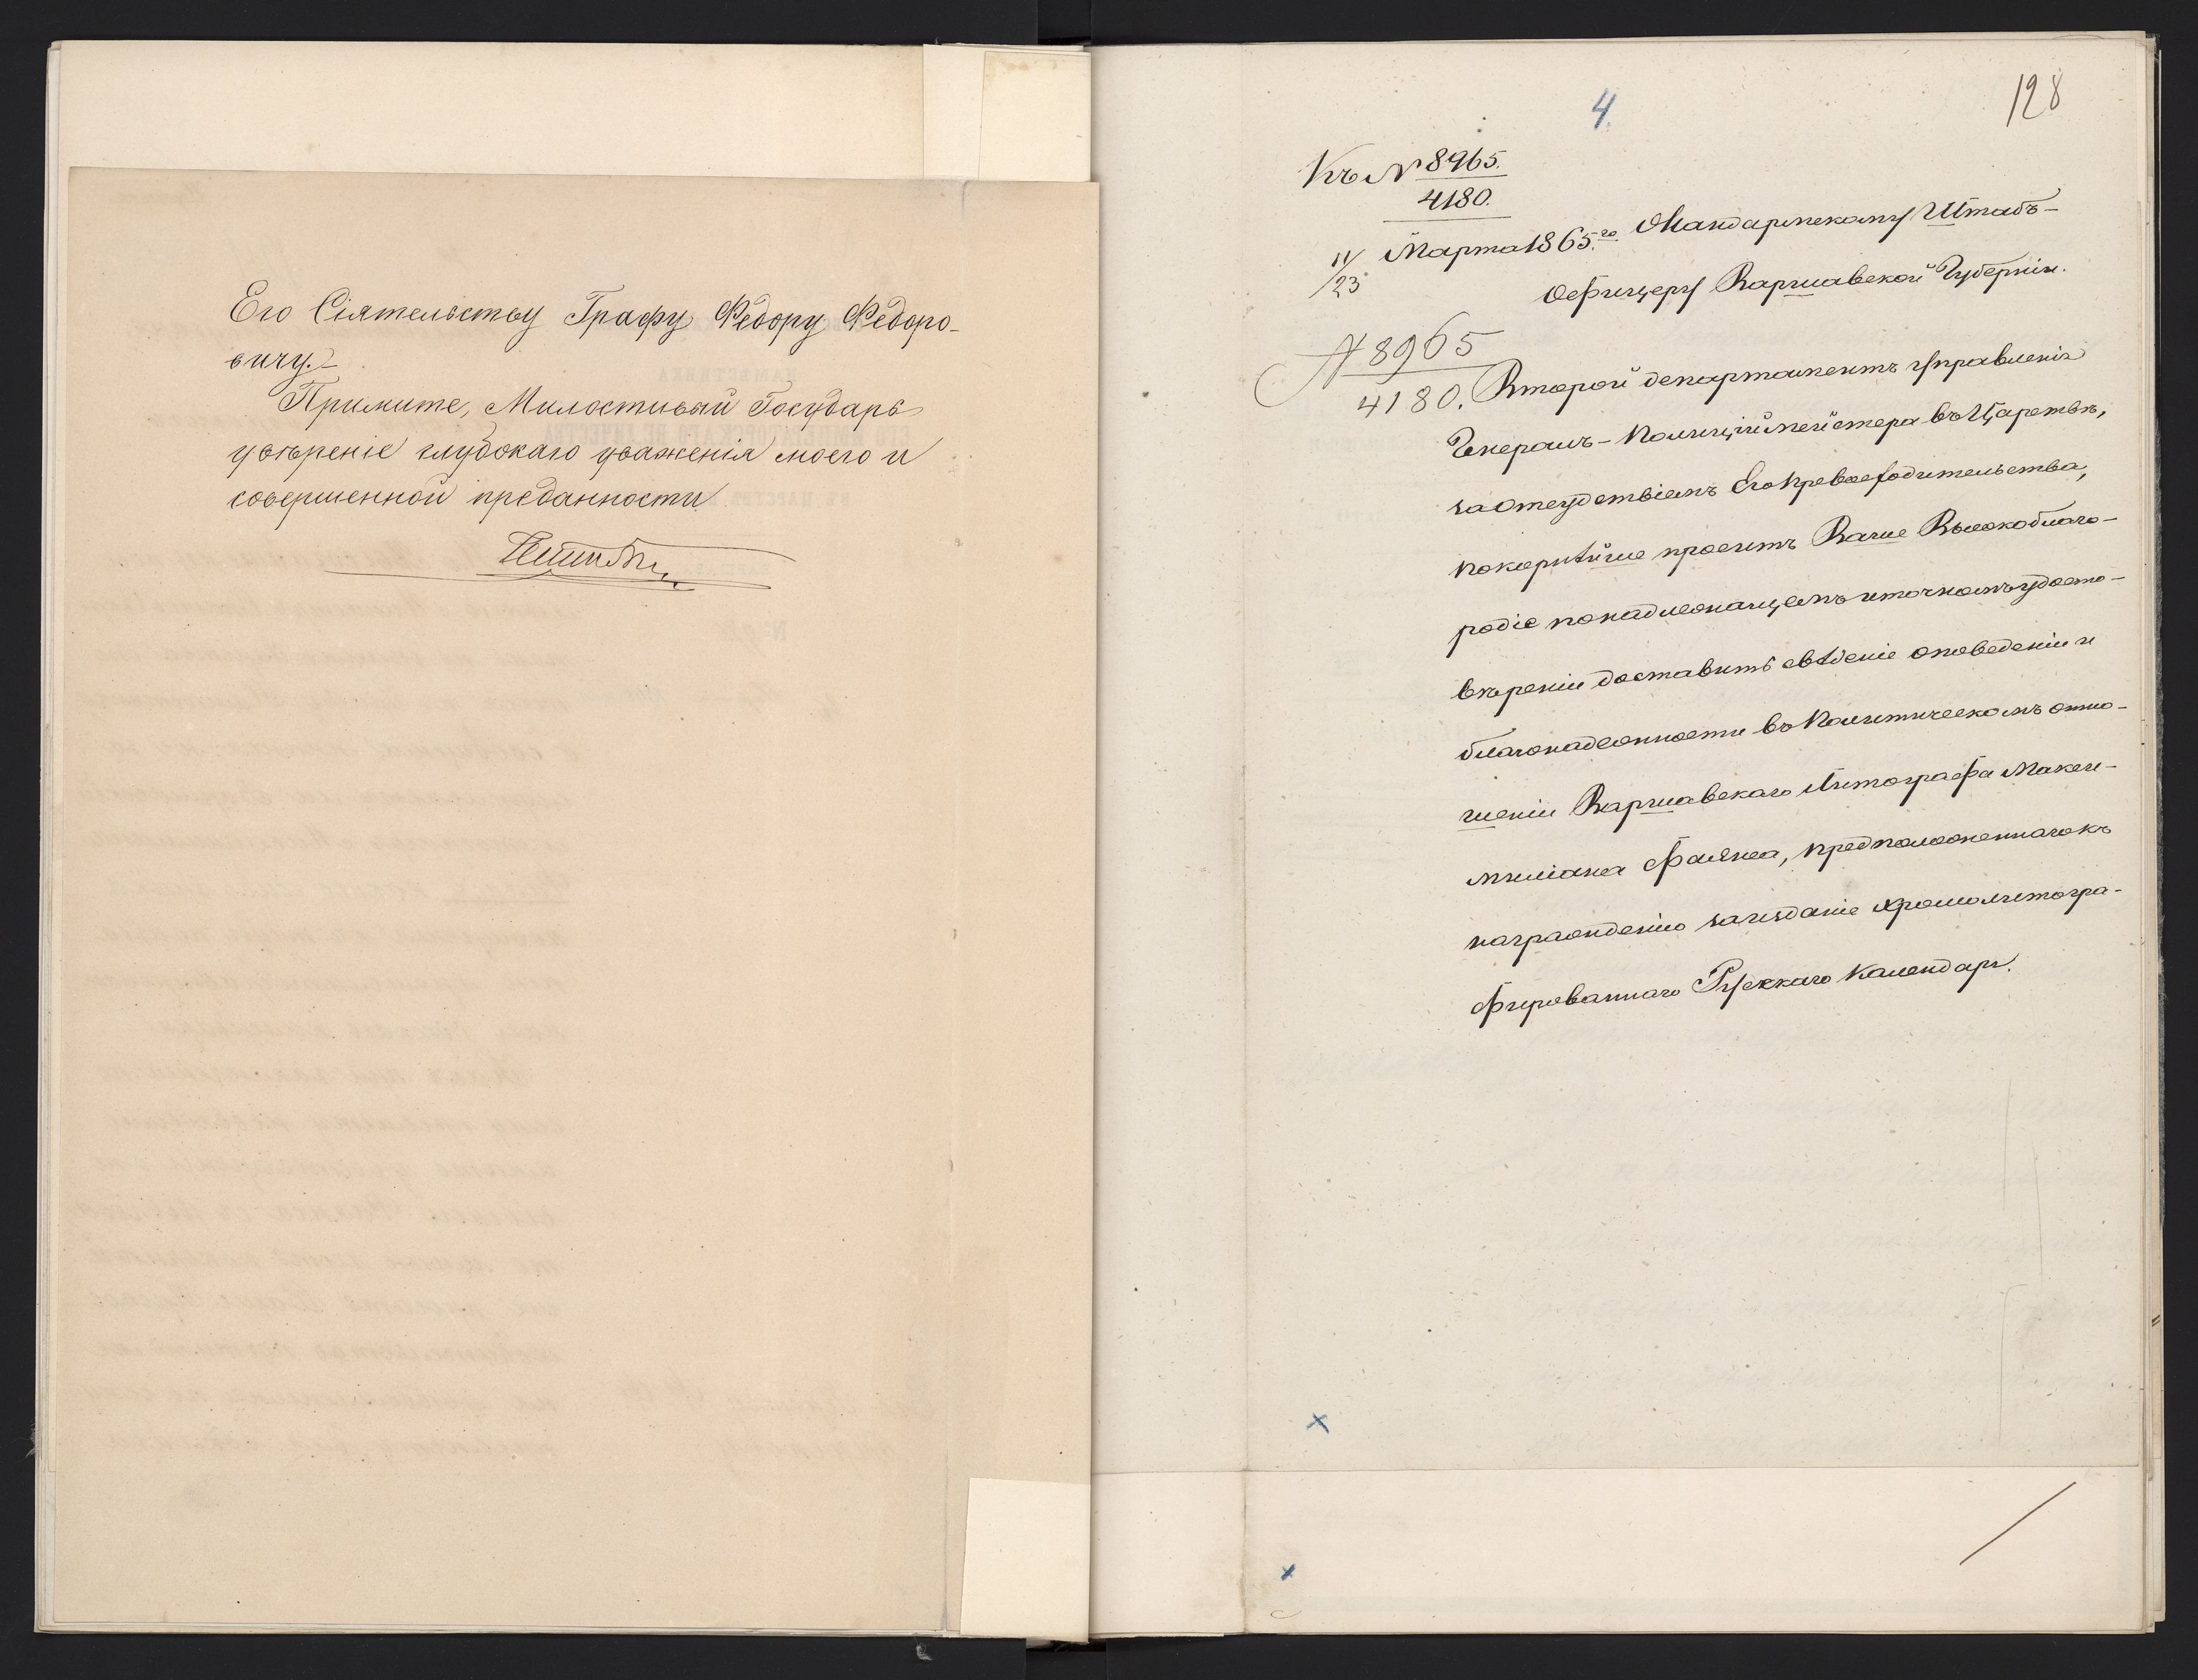 Его Сіятельству Графу Ѳедору Ѳедоро-
вичу.
Примите, Милостивый Государь
увѣреніе глубокаго уваженія моего и
совершенной преданности
4.
128
Къ № 8965.
4180.
11/23 Марта 1865.го Жандармскому Штабъ-
Офицеру Варшавской Губерніи.
№ 8965
4180.
Второй департаментъ управленія
Генералъ-Полиціймейстера въ Царствѣ,
за отсудствіемъ Его Превосходительства,
покорнѣйше проситъ Ваше Высокоблаго-
родіе по надлежащемъ и точномъ удосто-
вѣреніи доставить свѣдѣніе о поведеніи и
благонадежности въ Политическомъ отно-
шеніи Варшавскаго Литографа Макси-
миліана Фаянса, предположеннаго къ
награжденію за изданіе хромолитогра-
фированнаго Русскаго Календаря.